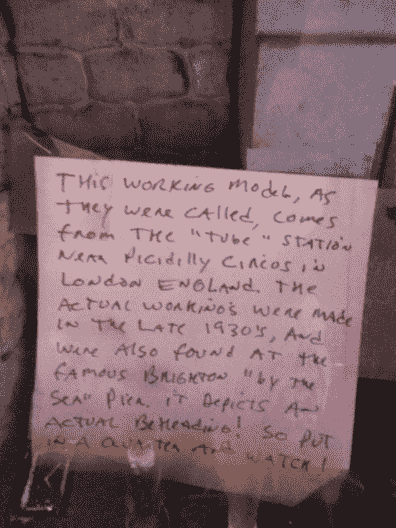 THIS WORKING MODEL, AS
THEY WERE CALLED, COMES
FROM THE "TUBE" STATION
NEAR PICIDILLY CIRCUS IN
LONDON ENGLAND. THE
ACTUAL WORKINGS WERE MADE
IN THE LATE 1930'S, AND
WERE ALSO FOUND AT THE
FAMOUS BRIGHTON "BY THE
SEA" PIER. IT DEPICTS AN
ACTUAL BEHEADING! SO PUT
IN A QUARTER AND WATCH!